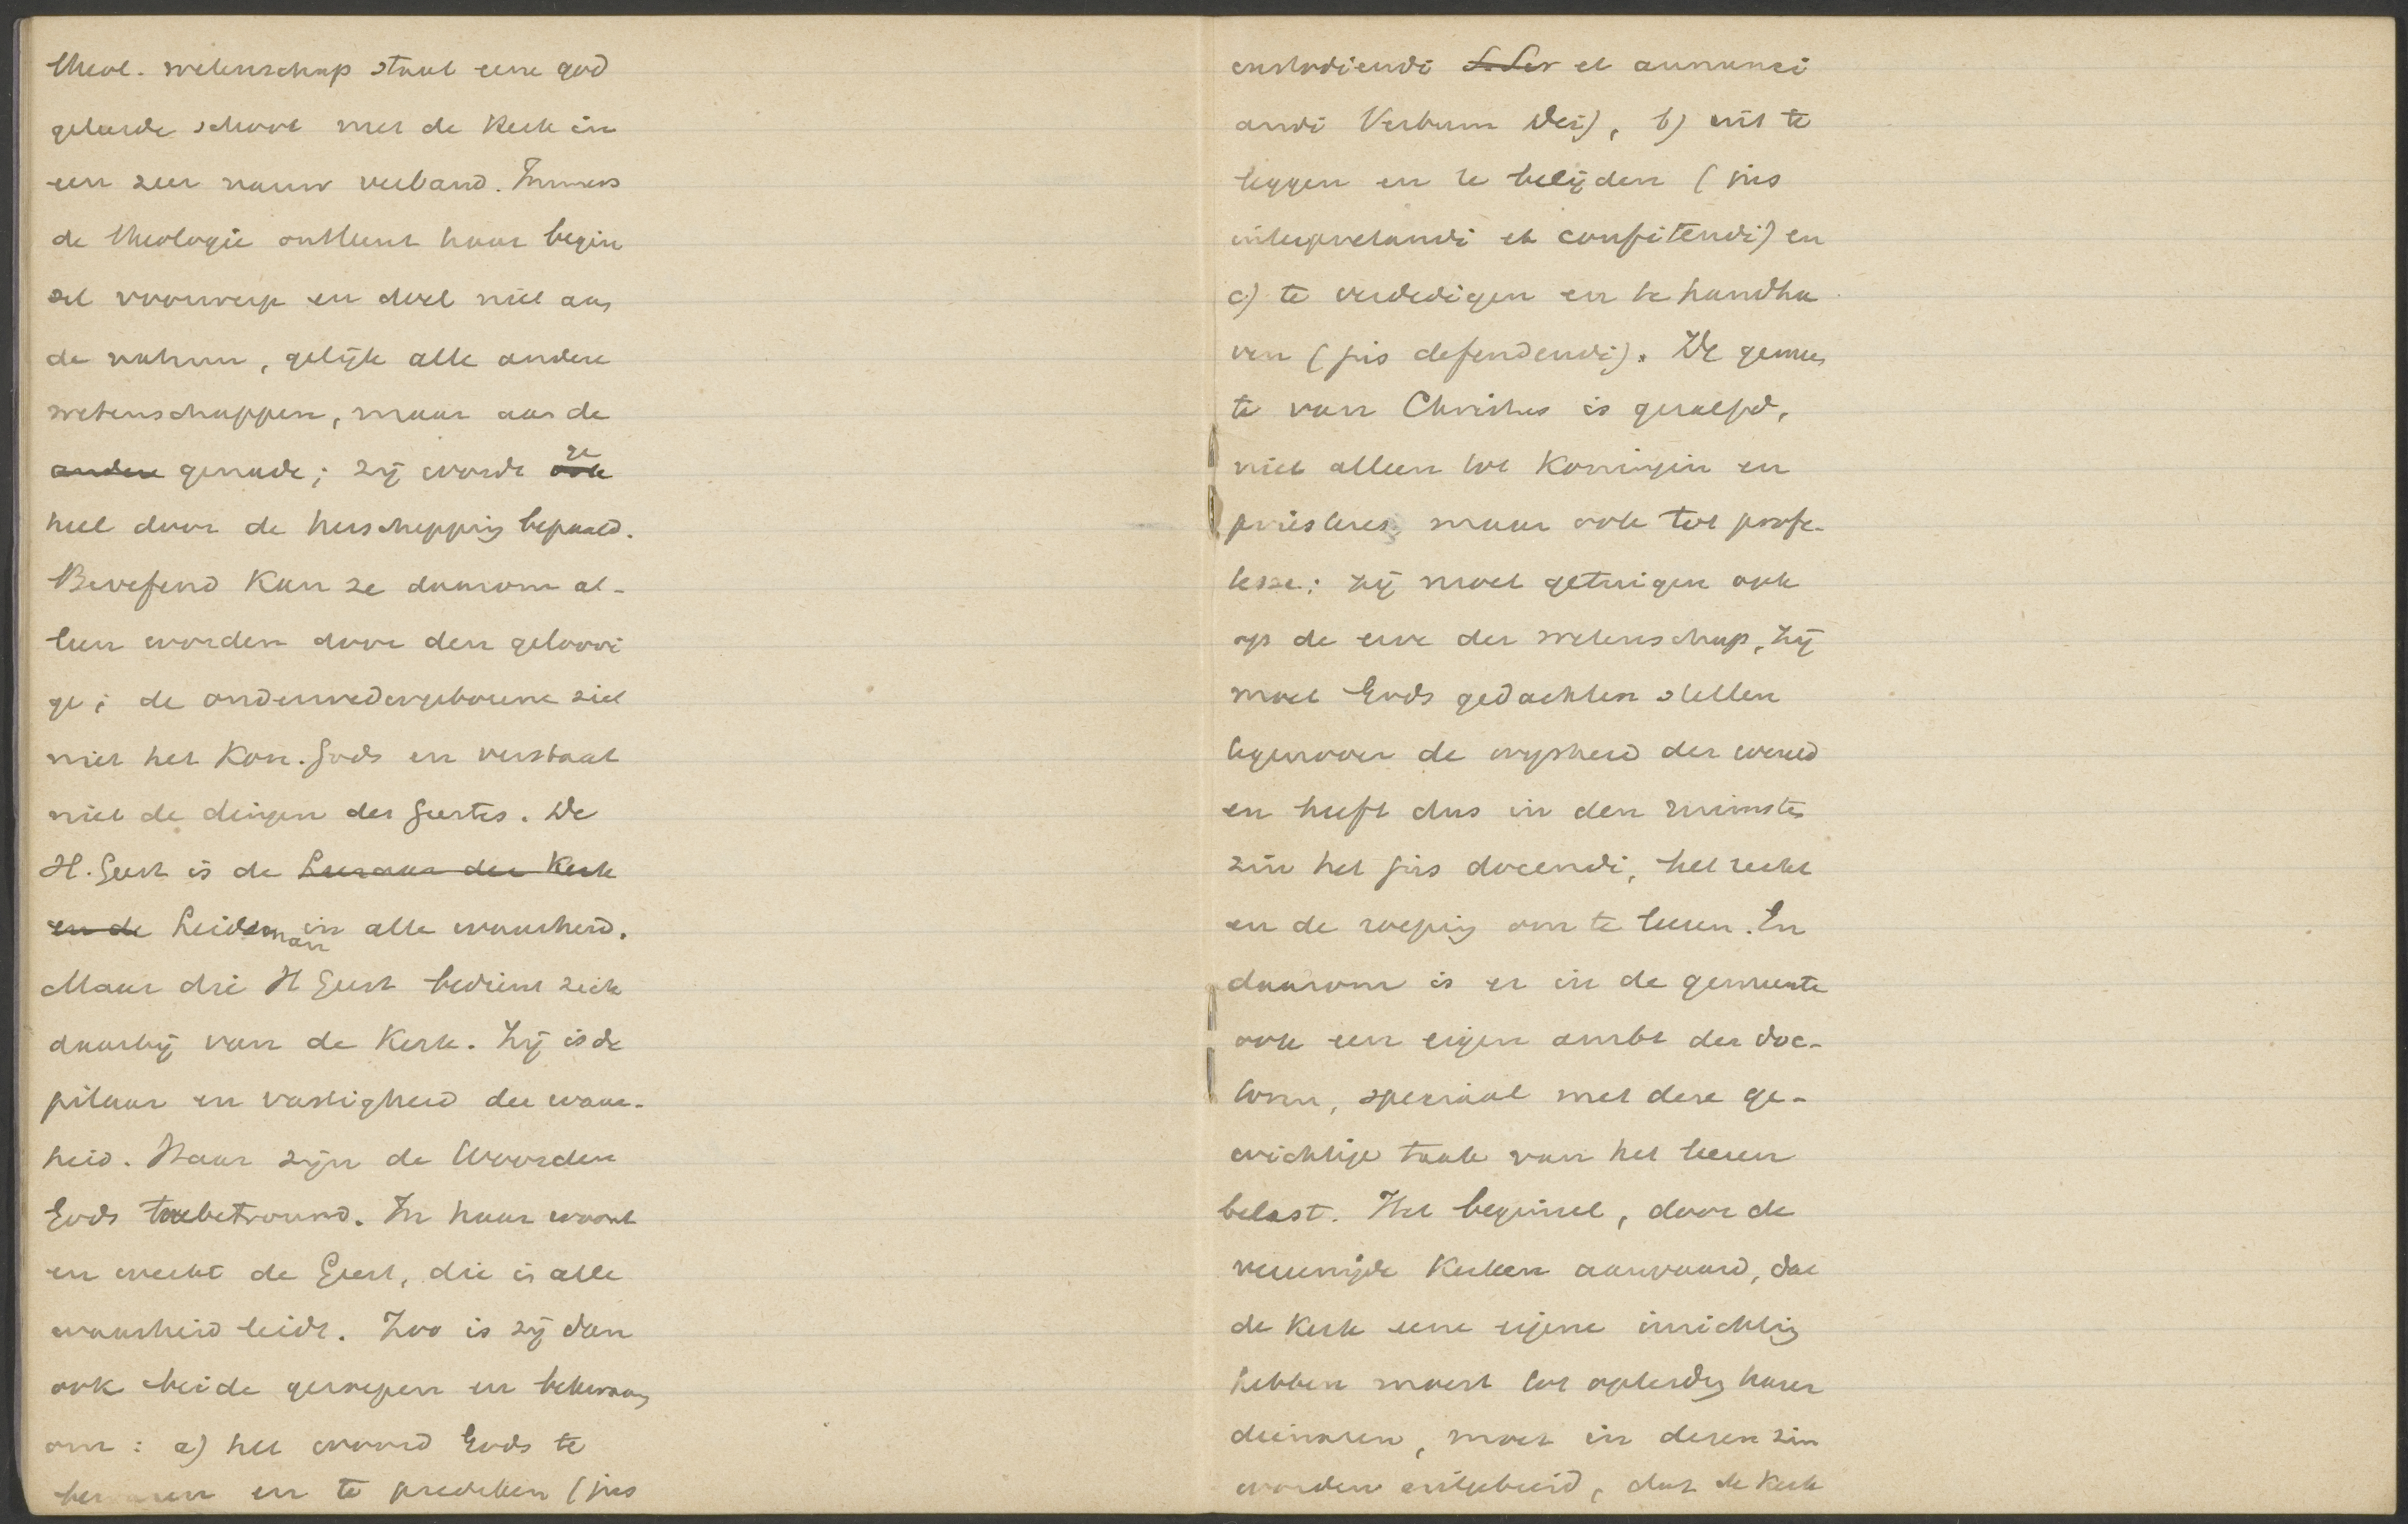 theol. wetenschap staat eene god
geleerde school met de Kerk in
een zeer nauw verband. Immers
de theologie ontleent haar begin
sel voorwerp en doel niet aan
de natuur, gelijk alle andere
wetenschappen, maar aan de
andere genade; zij wordt ook ge
heel door de herschepping bepaald.
Beoefend kan ze daarom al-
leen worden door den geloovi
ge; de onderwedergeborene ziet
niet het Kon. Gods en verstaat
niet de dingen des Geestes. De
H. Geest is de Leeraar der Kerk
en de Leidsman in alle waarheid.
Maar die H Geest bedient zich
daarbij van de Kerk. Zij is de
pilaar en vastigheid der waar-
heid. Haar zijn de Woorden
Gods toebetrouwd. In haar woont
en werkt de Geest, die in alle
waarheid leidt. Zoo is zij dan
ook beide geroepen en bekwaam
om: a) het woord Gods te
bewaren en te prediken (jus
custodiendi et annunci
andi Verbum Dei), b) uit te
leggen en te belijden (jus
interpretandi et confitendi) en
c) te verdedigen en te handha
ven (jus defendendi). De gemeen
te van Christus is gezalfd,
niet alleen tot Koningin en
priesteres, maar ook tot profe-
tesse; zij moet getuigen ook
op de erve der wetenschap, zij
moet Gods gedachten stellen
tegenover de wijsheid der wereld
en heeft dus in den ruimsten
zin het jus docendi, het recht
en de roeping om te leeren. En
daarom is er in de gemeente
ook een eigen ambt der doc-
toren, speciaal met deze ge-
wichtige taak van het leeren
belast. Het beginsel, door de
vereenigde Kerken aanvaard, dat
de Kerk eene eigene inrichting
hebben moest tot opleiding harer
dienaren, moet in dezen zin
worden uitgebreid, dat de Kerk